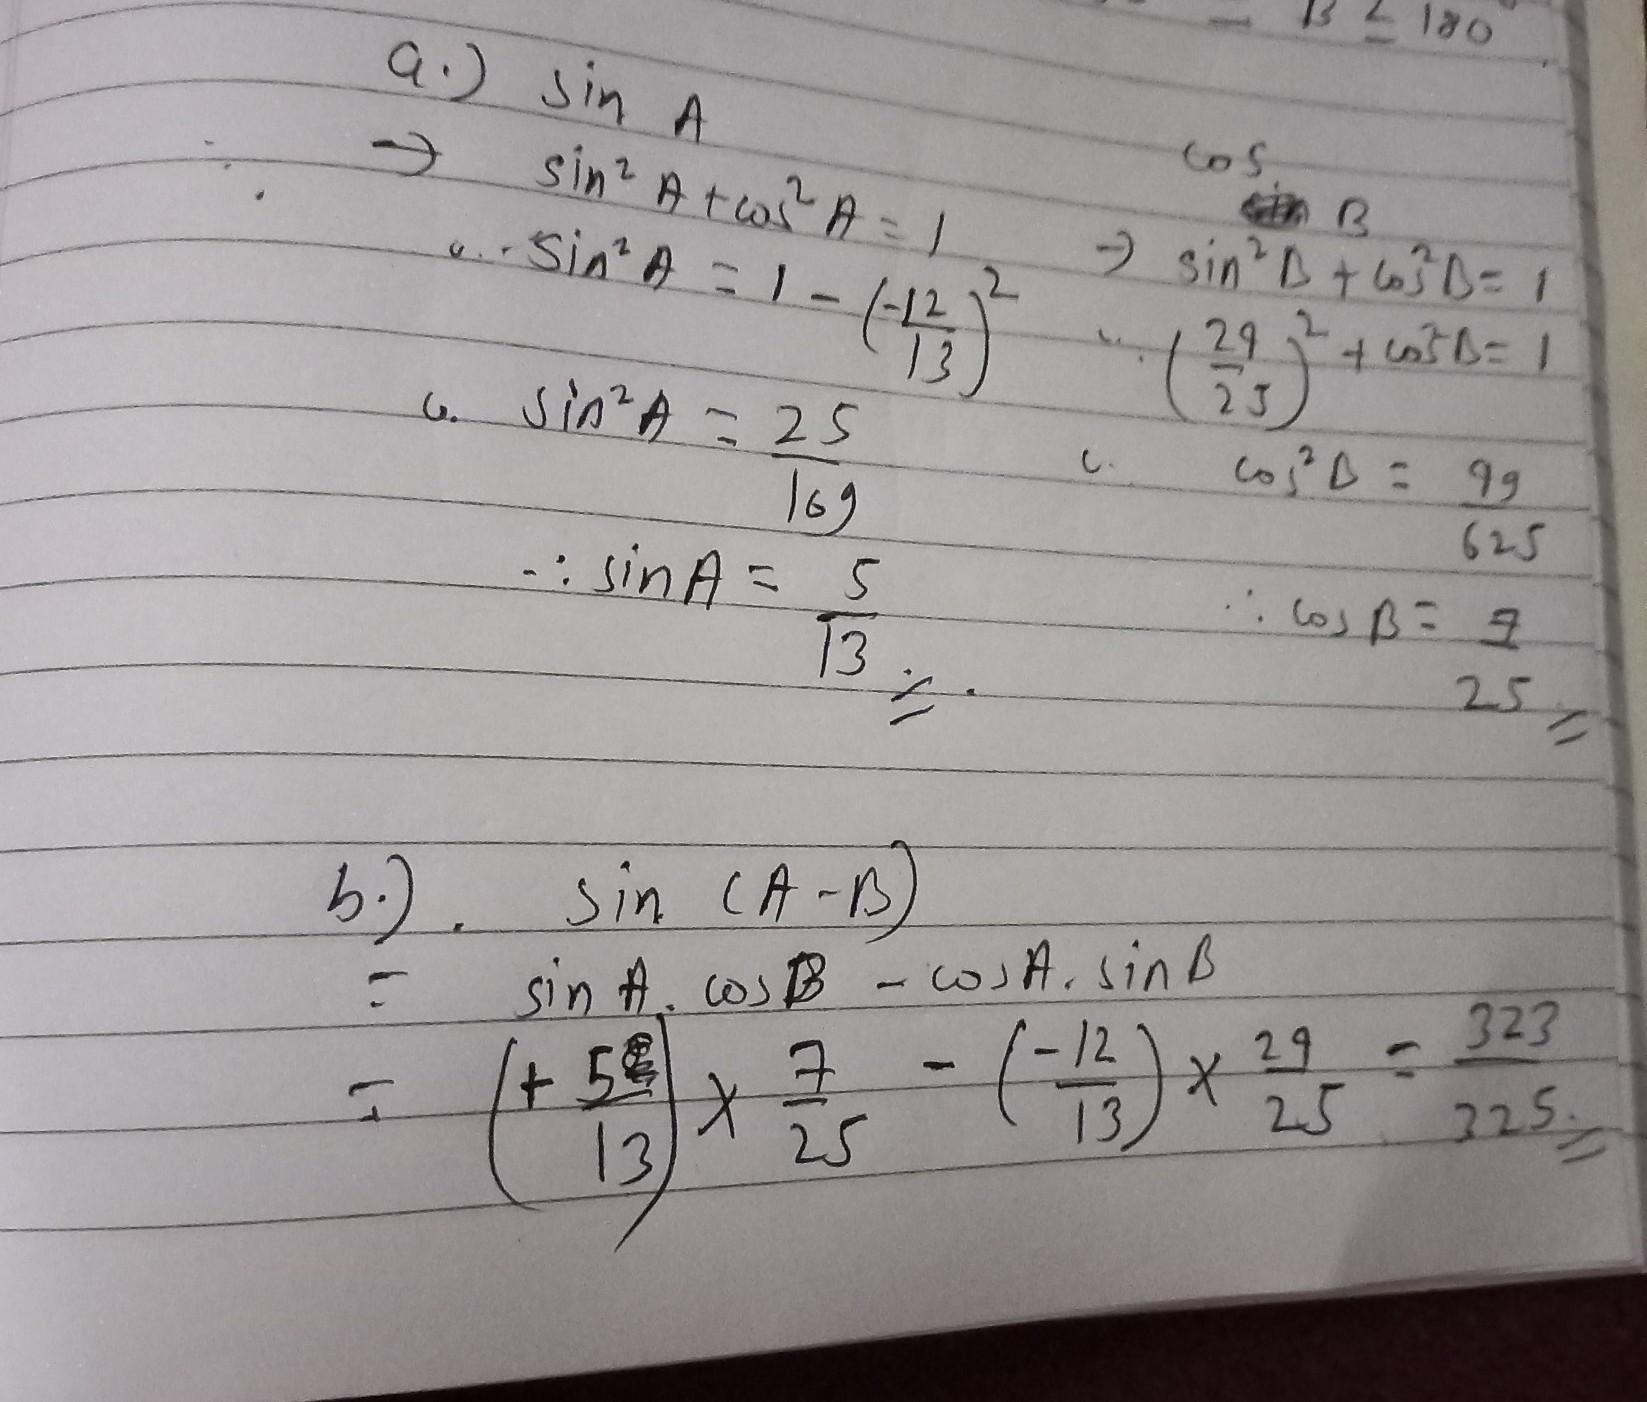 B ≤ 180°
a.) sin A
→ sin² A + cos² A = 1
∴ sin² A = 1 - (-12/13)²
sin² A = 25/169
∴ sin A = 5/13
cos B
→ sin² B + cos² B = 1
(24/25)² + cos² B = 1
cos² B = 49/625
∴ cos B = 7/25
b.) sin (A - B)
= sin A . cos B - cos A . sin B
= (+5/13) × 7/25 - (-12/13) × 24/25 = 323/325